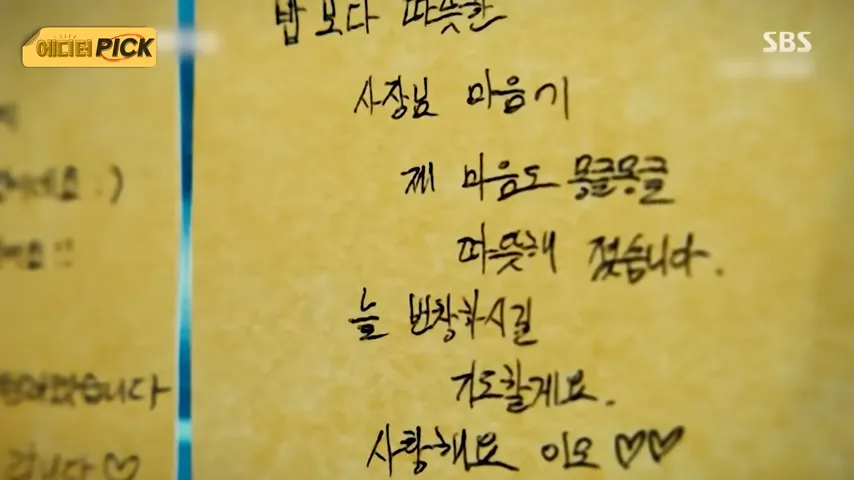 에디터PICK
SBS
밥보다 따뜻한
사장님 마음이
제 마음도 몽글몽글
따뜻해 졌습니다.
늘 번창하시길
기도할게요.
사랑해요 이모 ♡♡
습니다
니다♡